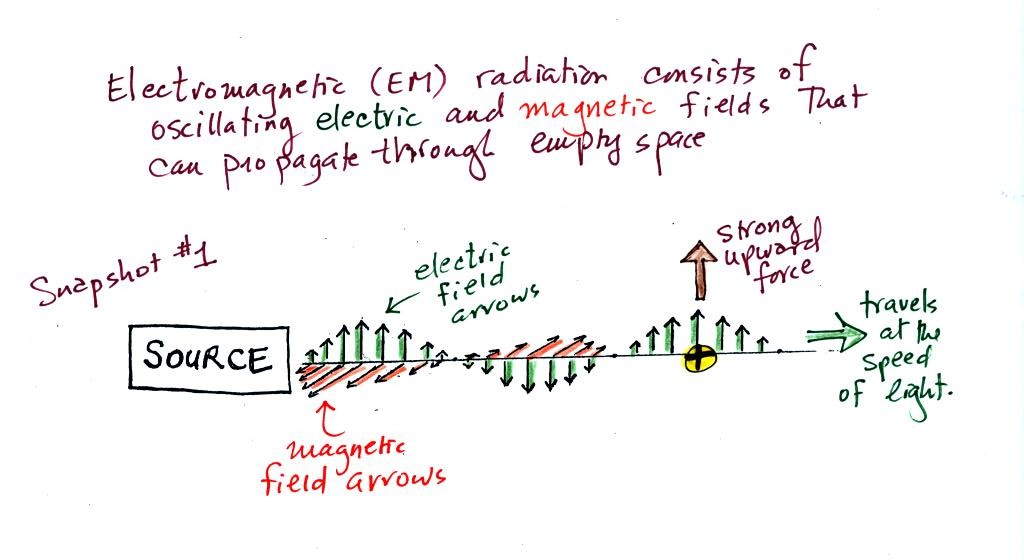 Electromagnetic (EM) radiation consists of
oscillating electric and magnetic fields That
can propagate through empty space
Snapshot #1
electric
field
arrows
strong
upward
force
SOURCE
+
travels
at the
speed
of light.
magnetic
field arrows